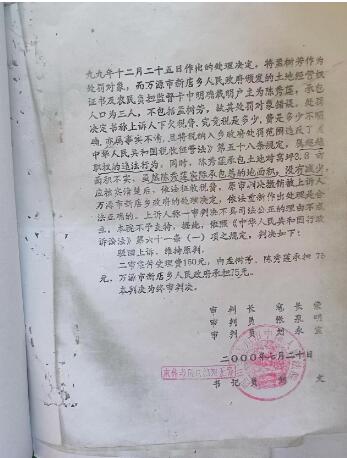 九九年十二月二十五日作出的处理决定，将孟树芳作为
处罚对象，而万源市新店乡人民政府颁发的土地经营权
证书及农民负担监督卡中明确载明户主为陈秀莲，承包
人口为三人，不包括孟树芳，故其处罚对象错误。处罚
决定书称上诉人下欠税费，究竟税是多少，费是多少不明
确，亦属事实不清，且将税纳入乡政府处罚范围违反了《
中华人民共和国税收征管法》第五十八条规定，
职权的违法行为。同时，陈秀莲承包土地对窝坪0.8亩
面积不实，虽然陈秀莲实际承包总的地面积，没有减少，
应核实清楚后，依法征收税费，原审判决撤销被上诉人
万源市新店乡人民政府的处理决定，依法重新作出处理是合
法正确的。上诉人称一审判决不具司法公正的理由不成
立，本院不予支持。据此，依照《中华人民共和国行政
诉讼法》第六十一条（一）项之规定，判决如下：
驳回上诉，维持原判。
二审案件受理费150元，由孟树芳、陈秀莲承担75
元，万源市新店乡人民政府承担75元。
本判决为终审判决。
审 判 长 长 荣
审 判 员 张 泉 明
审 判 员 刘 永
二000年七月二十日
书 记 员 文